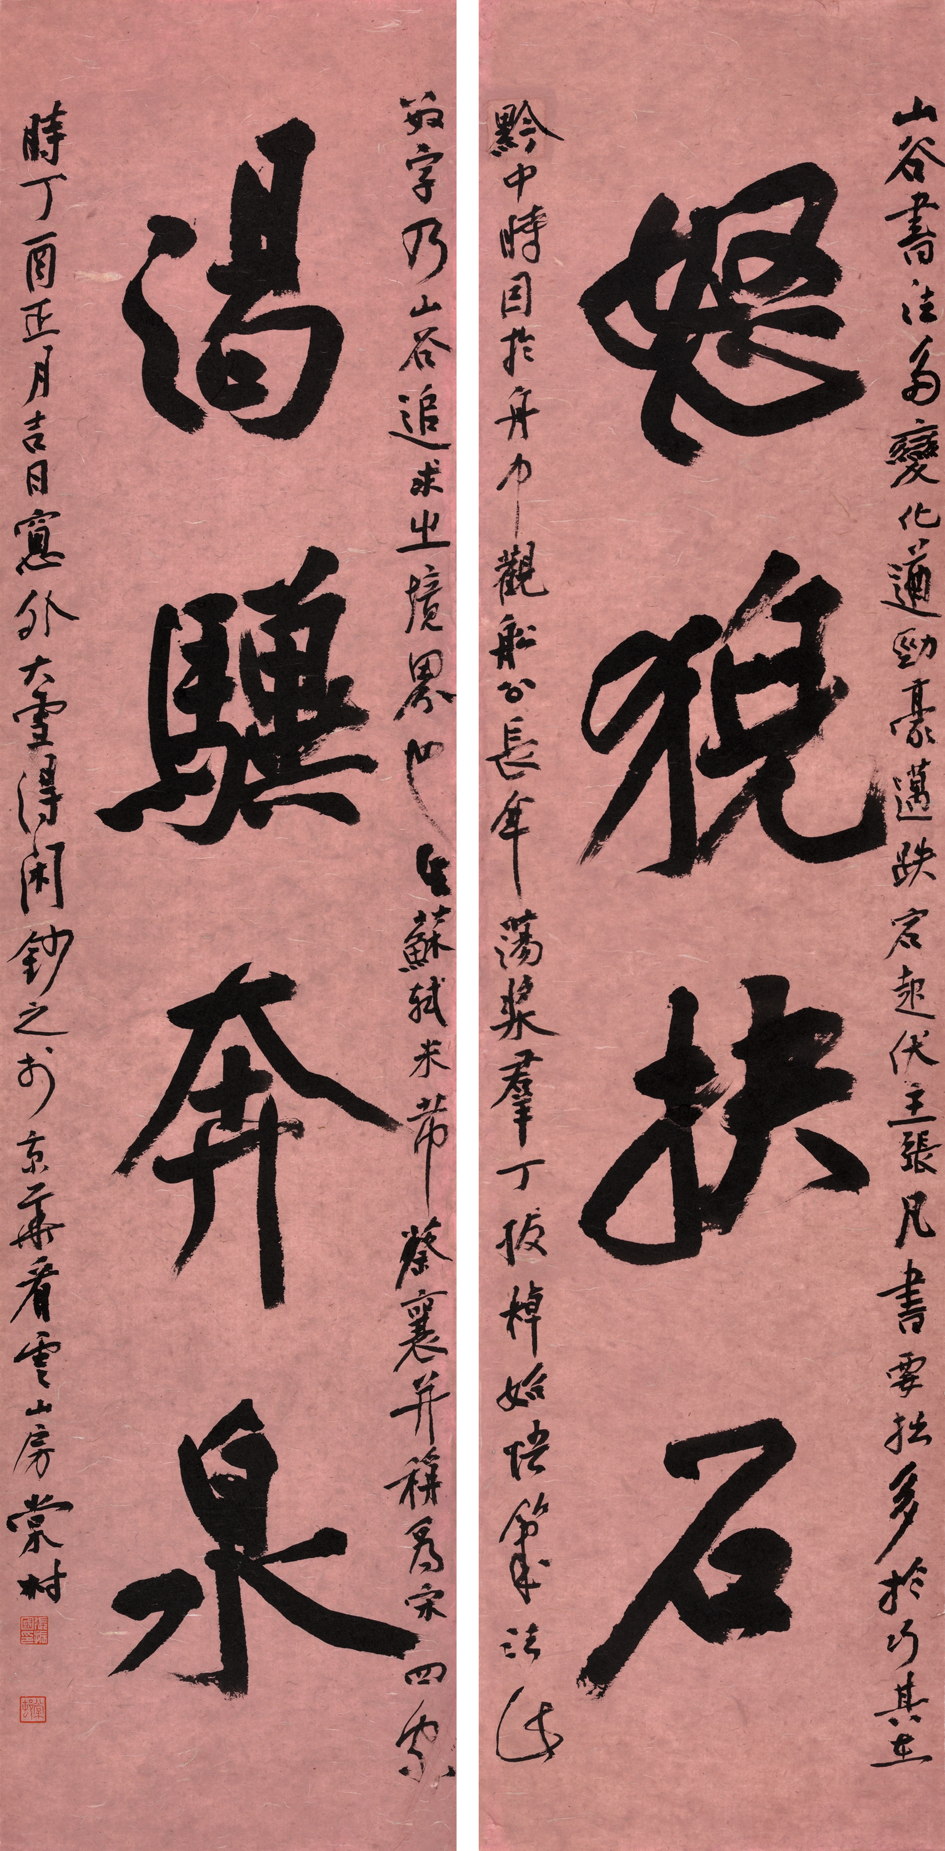 山谷書法多變化遒勁豪邁跌宕起伏主張凡書要拙多於巧其在
怒猊抉石
黔中時因於舟中觀船公長年蕩槳羣丁撥棹始悟筆法
數字乃山谷追求之境界也 蘇軾米芾蔡襄并稱為宋四家
渴驥奔泉
時丁酉正月吉日窗外大雪得閑鈔之於京華看雲山房棠村